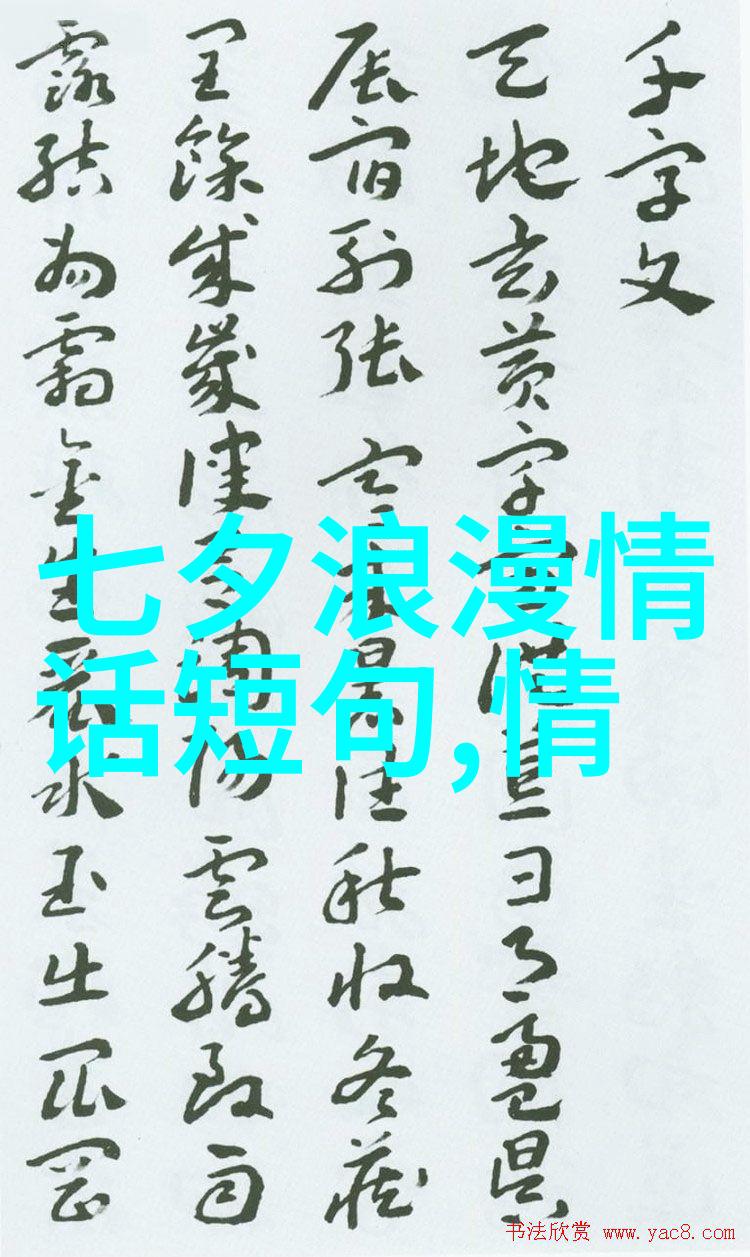 千字文
天地玄黄宇宙洪荒日月盈昃
辰宿列張寒来暑往秋收冬藏
閏餘成歲律吕調陽雲騰致雨
露結為霜金生麗水玉出崑岡
七夕浪漫情
话短句,情
书法欣赏 www.yac8.com